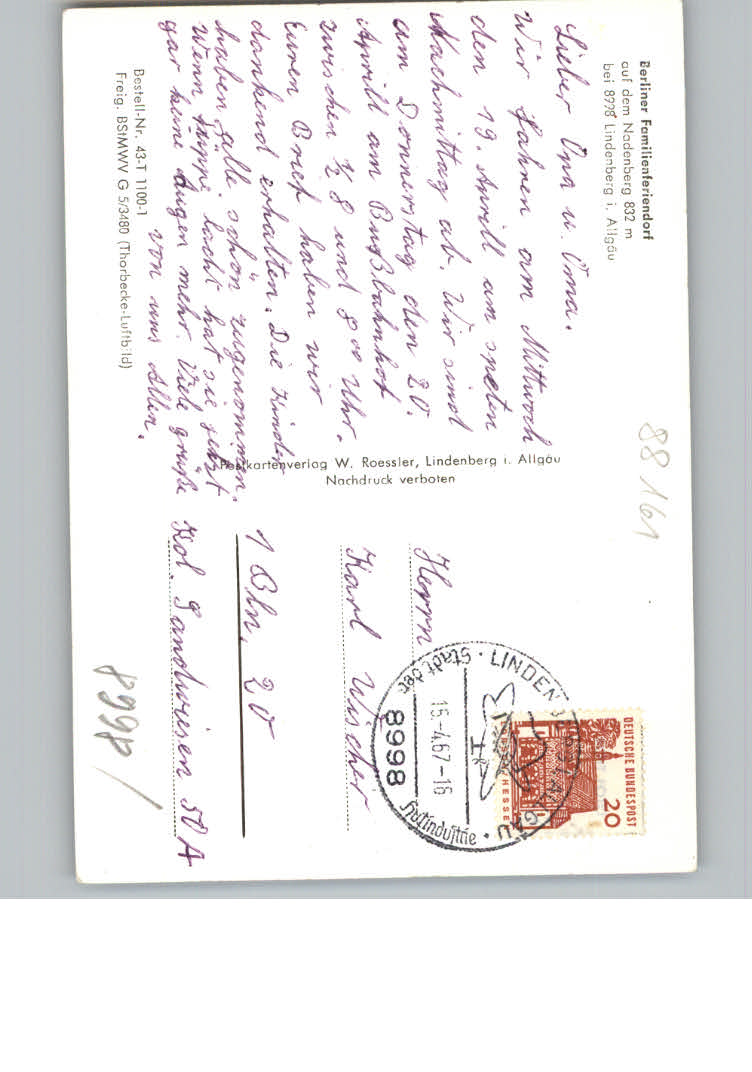 Berliner Familienferiendorf
auf dem Nadenberg 832 m
bei 8998 Lindenberg i. Allgäu
Lieber Opa u. Oma.
Wir fahren am Mittwoch
den 19. Aprill am späten
Nachmittag ab. Wir sind
am Donnerstag den 20.
Aprill am Bußbahnhof
zwischen ½ 8 und 8⁰⁰ Uhr.
Euren Brief haben wir
dankend erhalten. Die Kinder
haben alle schön zugenommen.
Wenn lacht hat sie jetzt
gar keine Augen mehr. Viele grüße
von uns Allen.
Bestell-Nr. 43-T 1100-1
Freig. BStMWV G 5/3480 (Thorbecke-Luftbild)
Postkartenverlag W. Roessler, Lindenberg i. Allgäu
Nachdruck verboten
88 161
DEUTSCHE BUNDESPOST
20
HESSEN
LINDENBERG ALLGÄU
Stadt der Hutindustrie
15.-4.67-16
8998
Herrn
Karl Wischer
1 Bln. 20
Kol. Sandwiesen 50 A
8998 /